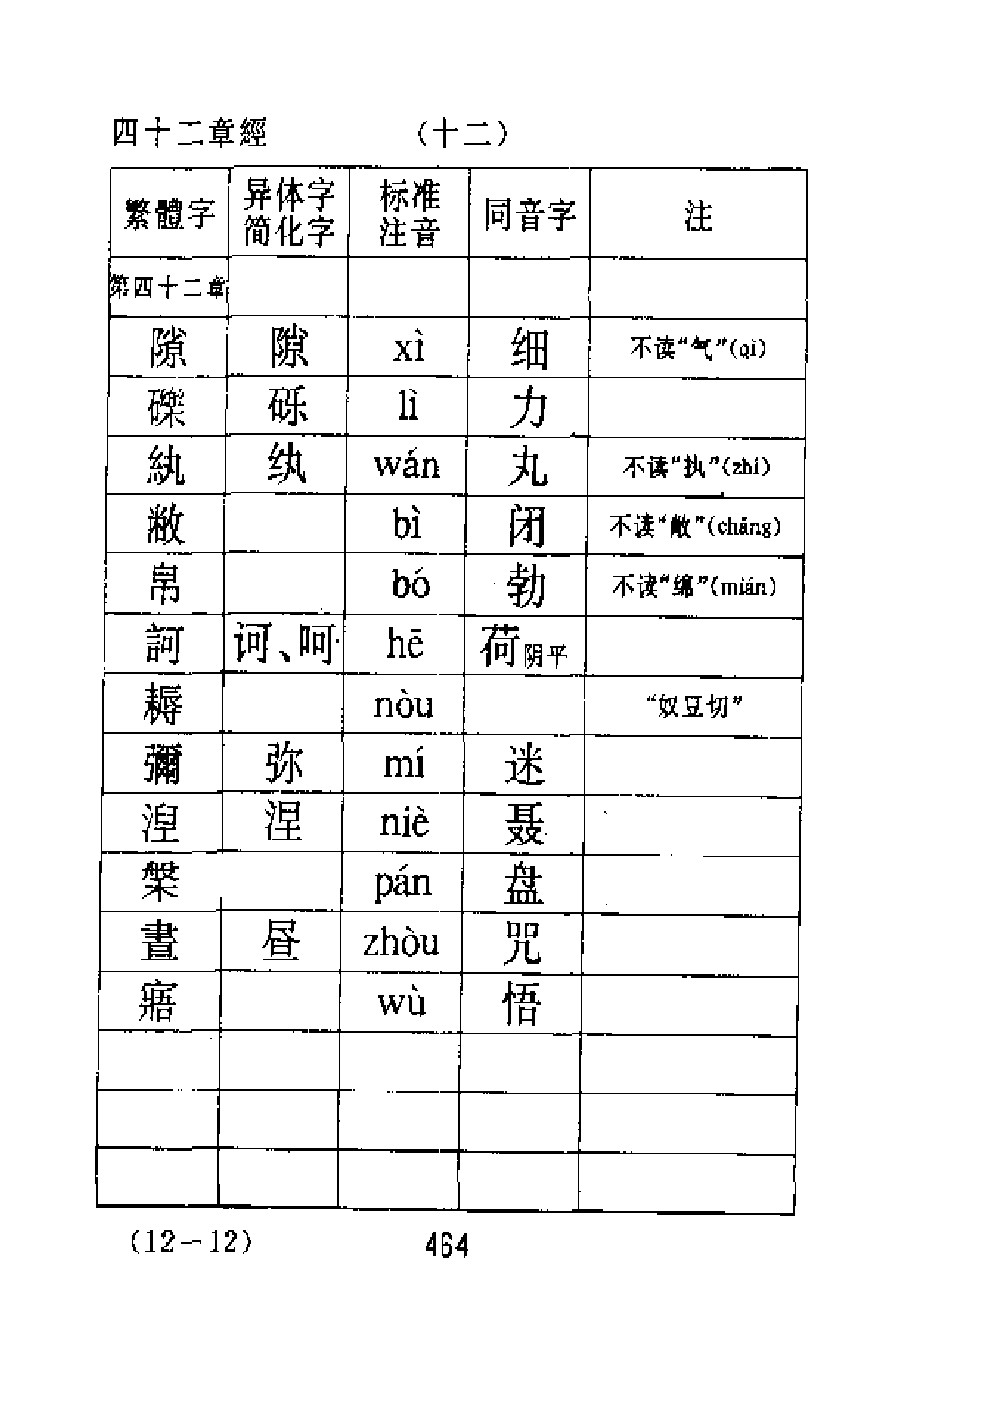 四十二章經 （十二）
繁體字 异体字简化字 标准注音 同音字 注
第四十二章
隙 隙 xì 细 不读“气”(qì)
礫 砾 lì 力
紈 纨 wán 丸 不读“执”(zhí)
敝 bì 闭 不读“敞”(chǎng)
帛 bó 勃 不读“绵”(mián)
訶 诃、呵 hē 荷阴平
耨 nòu “奴豆切”
彌 弥 mí 迷
涅 涅 niè 聂
槃 pán 盘
晝 昼 zhòu 咒
寤 wù 悟
(12—12) 464